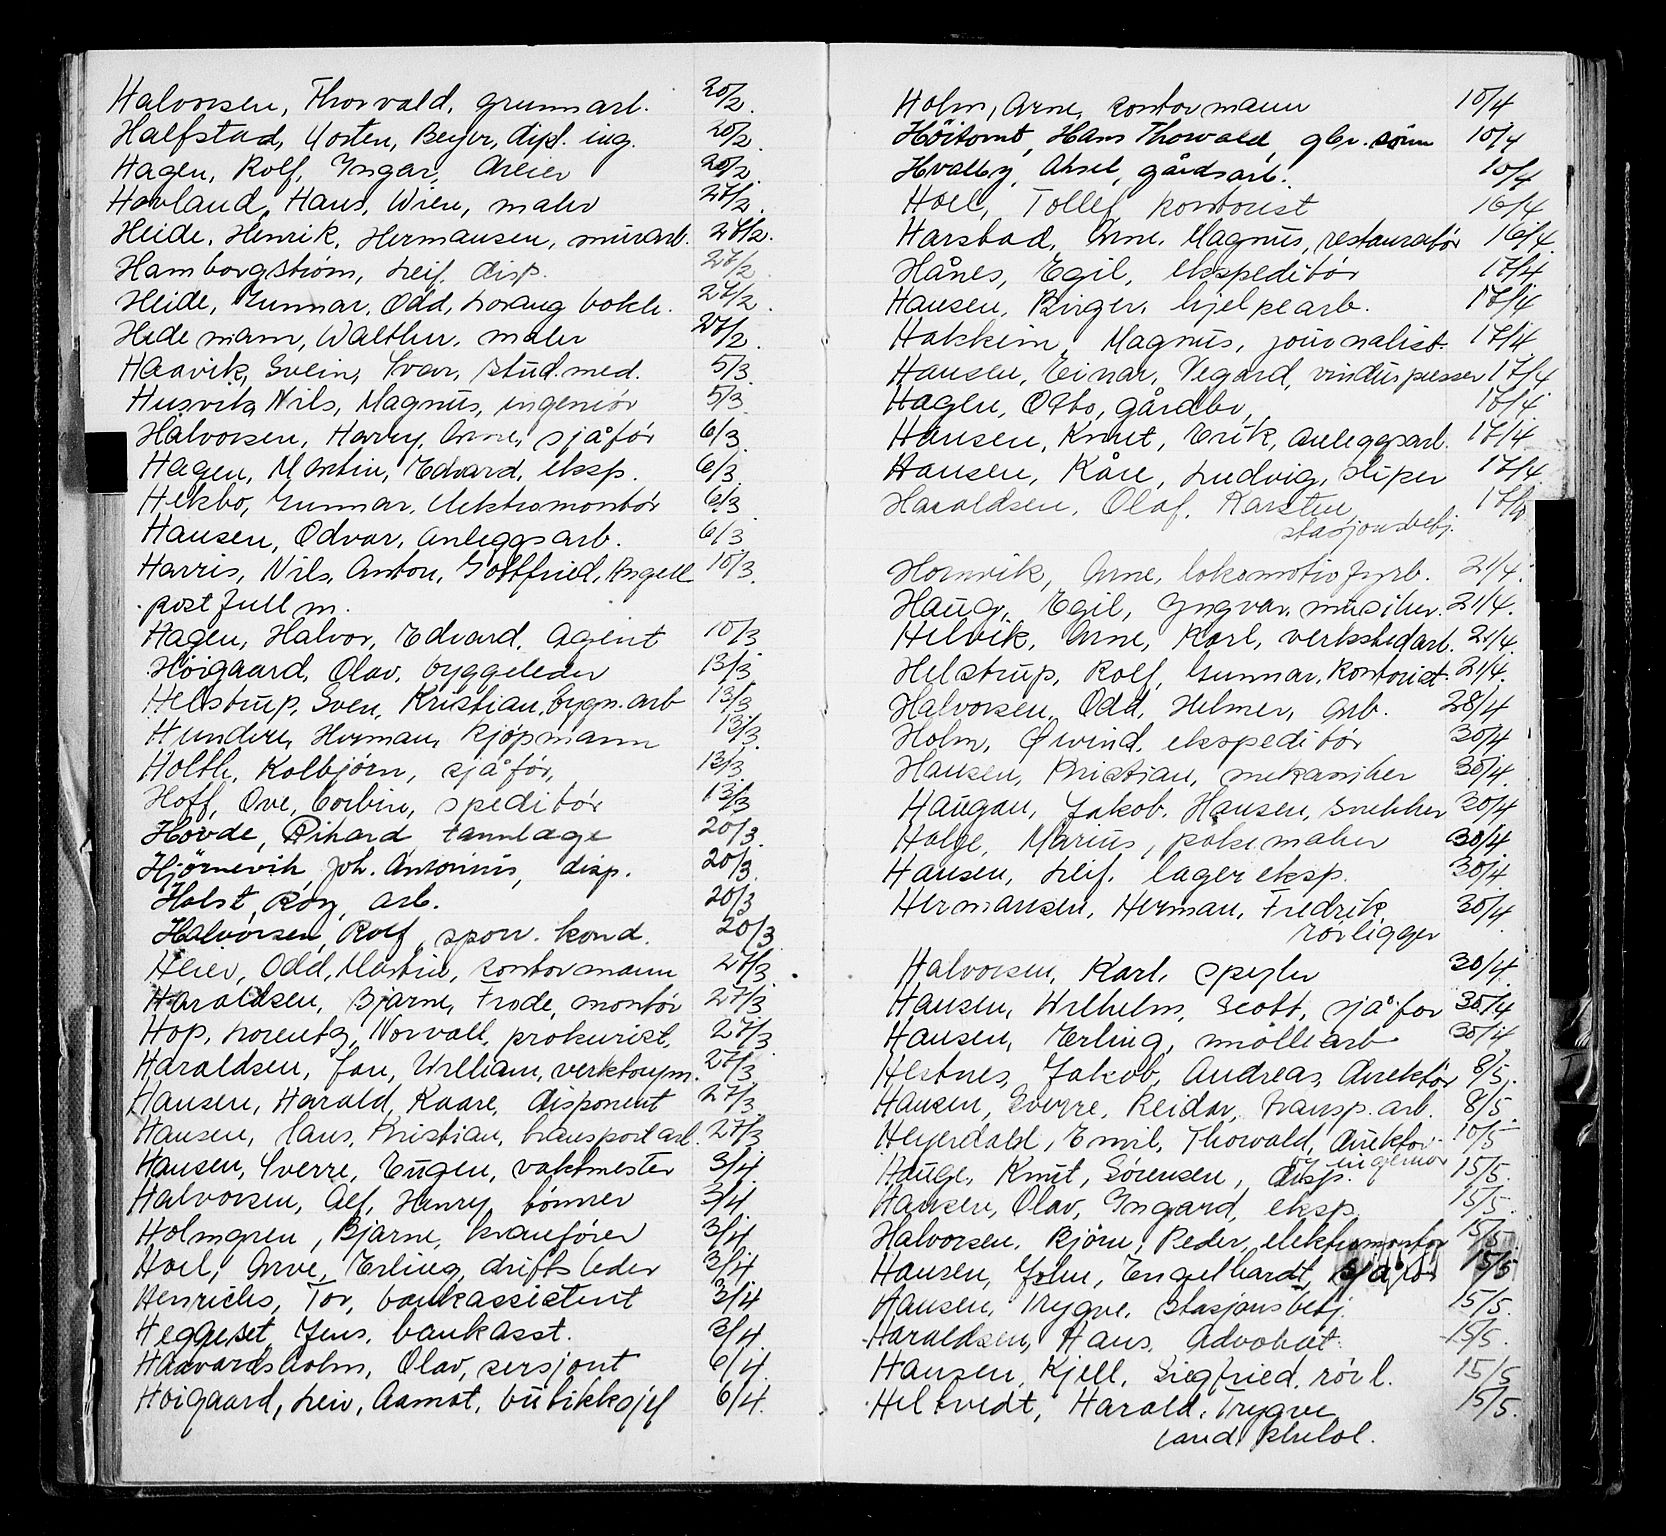 Halvorsen, Thorvald, grunnarb. 20/2.
Halfstad, Mosten, Beyer, dipl. ing. 20/2.
Hagen, Rolf, Yngar, 20/2.
Hovland, Hans, Wien, maler 27/2.
Heide, Henrik, Hermansen, murarb. 27/2.
Hamborgstrøm, Leif, disp. 27/2.
Heide, Gunnar, Odd, Lorang bokh. 27/2.
Hedemann, Walther, maler 27/2.
Haavik, Svein, Ivar, stud.med. 5/3.
Husvik, Nils, Magnus, ingeniør 5/3.
Halvorsen, Harry, Arne, sjåfør 6/3.
Hagen, Martin, Edvard, eksp. 6/3.
Hekbo, Gunnar, elektromontør 6/3.
Hansen, Odvar, anleggsarb. 6/3
Harris, Nils, Anton, Gottfried, Angell 10/3.
postfullm.
Hagen, Halvor, Edvard, agent 10/3
Høigaard, Olav, byggeleder 13/3.
Helstrup, Sven, Kristian, bygn.arb 13/3
Hundere, Herman, kjøpmann 13/3.
Holth, Kolbjørn, sjåfør, 13/3.
Hoff, Ove, Corbin, speditør 13/3
Høvde, Rihard tannlæge 20/3.
Hjørnevik Joh. Antonius, disp. 20/3.
Holst, Roy, arb. 20/3
Halvorsen, Rolf, sporv. kond. 20/3
Heier, Odd, Martin, kontormann 27/3.
Haraldsen, Bjarne, Frode, montør 27/3.
Hop, Lorentz, Norvall, prokurist, 27/3
Haraldsen, Jan, William, verktøym. 27/3.
Hansen, Harald, Kaare, disponent 27/3.
Hansen, Hans, Kristian, transportarb. 27/3
Hansen, Sverre, Eugen, vaktmester 3/4.
Halvorsen, Alf, Henry, tønner 3/4.
Holmgren, Bjarne, kranfører 3/4
Hoel, Arve, Erling, driftsleder 3/4
Henrichs, Tor, bankassistent 3/4
Heggeset, Jens, bankasst. 3/4.
Haavardsholm, Olav, sersjant 6/4.
Høigaard, Leiv, Aamot, butikksjef 6/4.
Holm, Arne, kontormann 10/4
Høitomt, Hans Thorvald, gbr. sønn 10/4
Hvalby, Aksel, gårdsarb. 10/4
Hoel, Tollef, kontorist 16/4.
Harstad, Arne, Magnus, restauratør 16/4.
Hånes, Egil, ekspeditør 17/4
Hansen, Birger, hjelpearb. 17/4
Hakkim, Magnus, journalist. 17/4
Hansen, Einar, Vegard, vinduspusser 17/4
Hagen, Otto, gårdbr, 17/4.
Hansen, Knut, Erik, anleggsarb. 17/4
Hansen, Kåre, Ludvig, sliper 17/4.
Haraldsen, Olaf, Karsten, 17/4
stasjonsbetj.
Hornvik, Arne, lokomotivfyrb. 21/4.
Haug, Egil, Yngvar, musiker. 21/4.
Helvik, Arne, Karl, verkstedarb. 21/4.
Helstrup, Rolf, Gunnar, kontorist. 21/4.
Halvorsen, Odd, Helmer, arb. 28/4
Holm, Øivind, ekspeditør 30/4
Hansen, Kristian, mekaniker 30/4.
Haugan, Jakob, Hansen, snekker 30/4
Holge, Marius, maler 30/4
Hansen, Leif, lagereksp. 30/4
Hermansen, Herman, Fredrik, 30/4.
rørligger
Halvorsen, Karl, speyler 30/4.
Hansen, Wilhelm, Scott, sjåfør 30/4
Hansen, Erling, møllearb 30/4
Hestnes, Jakob, Andreas, direktør 8/5.
Hansen, Sverre, Reidar, transp.arb. 8/5.
Heyerdahl, Emil, Thorvald, direktør 10/5
ingeniør
Hauge, Knut, Sørensen, disp. 15/5.
Hansen, Olav, Ingard, eksp. 15/5.
Halvorsen, Bjørn, Peder, elektromontør 15/5
Hansen, John, Engelhardt, sjåfør 15/5
Hansen, Trygve, stasjonsbetj. 15/5.
Haraldsen, Hans, advokat. 15/5.
Hansen, Kjell, Siegfried, rørl. 15/5
Heltvedt, Harald, Trygve 15/5.
cand. philol.